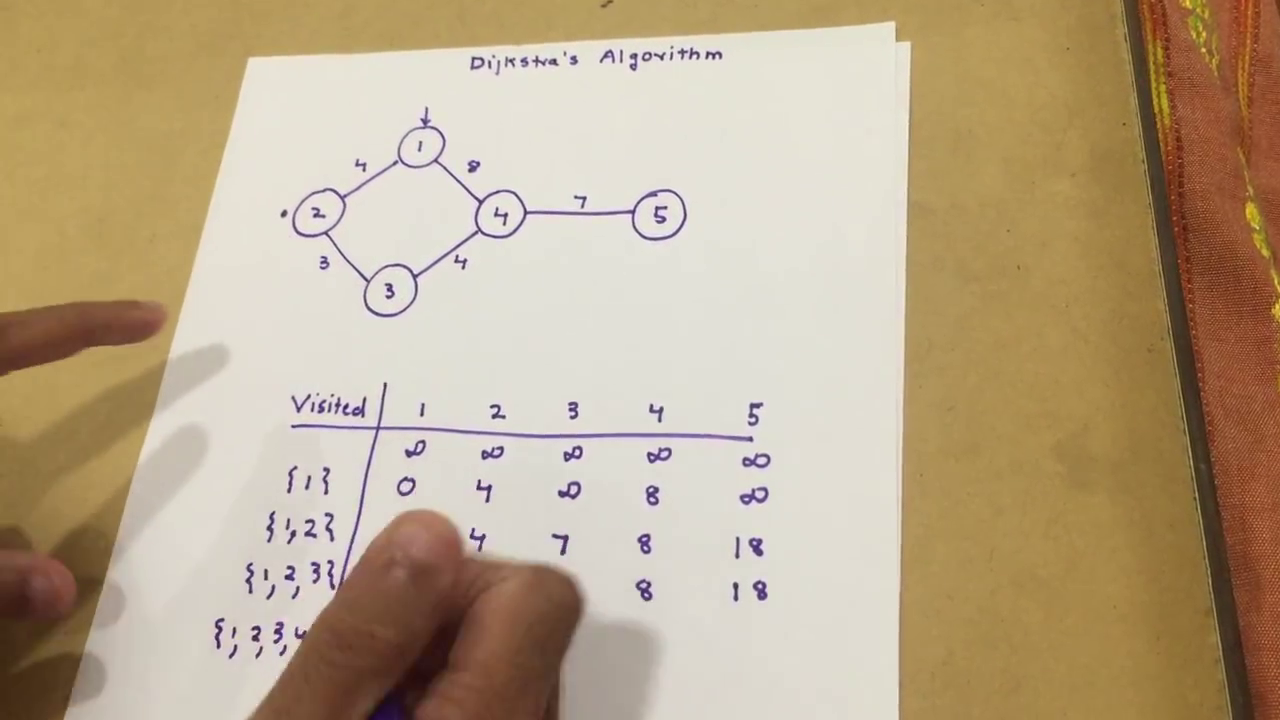 Dijkstra's Algorithm
1
4 8
2 4 7 5
3 4
3
Visited 1 2 3 4 5
∞ ∞ ∞ ∞ ∞
{1} 0 4 ∞ 8 ∞
{1,2} 4 7 8 18
{1,2,3} 8 18
{1,2,3,4